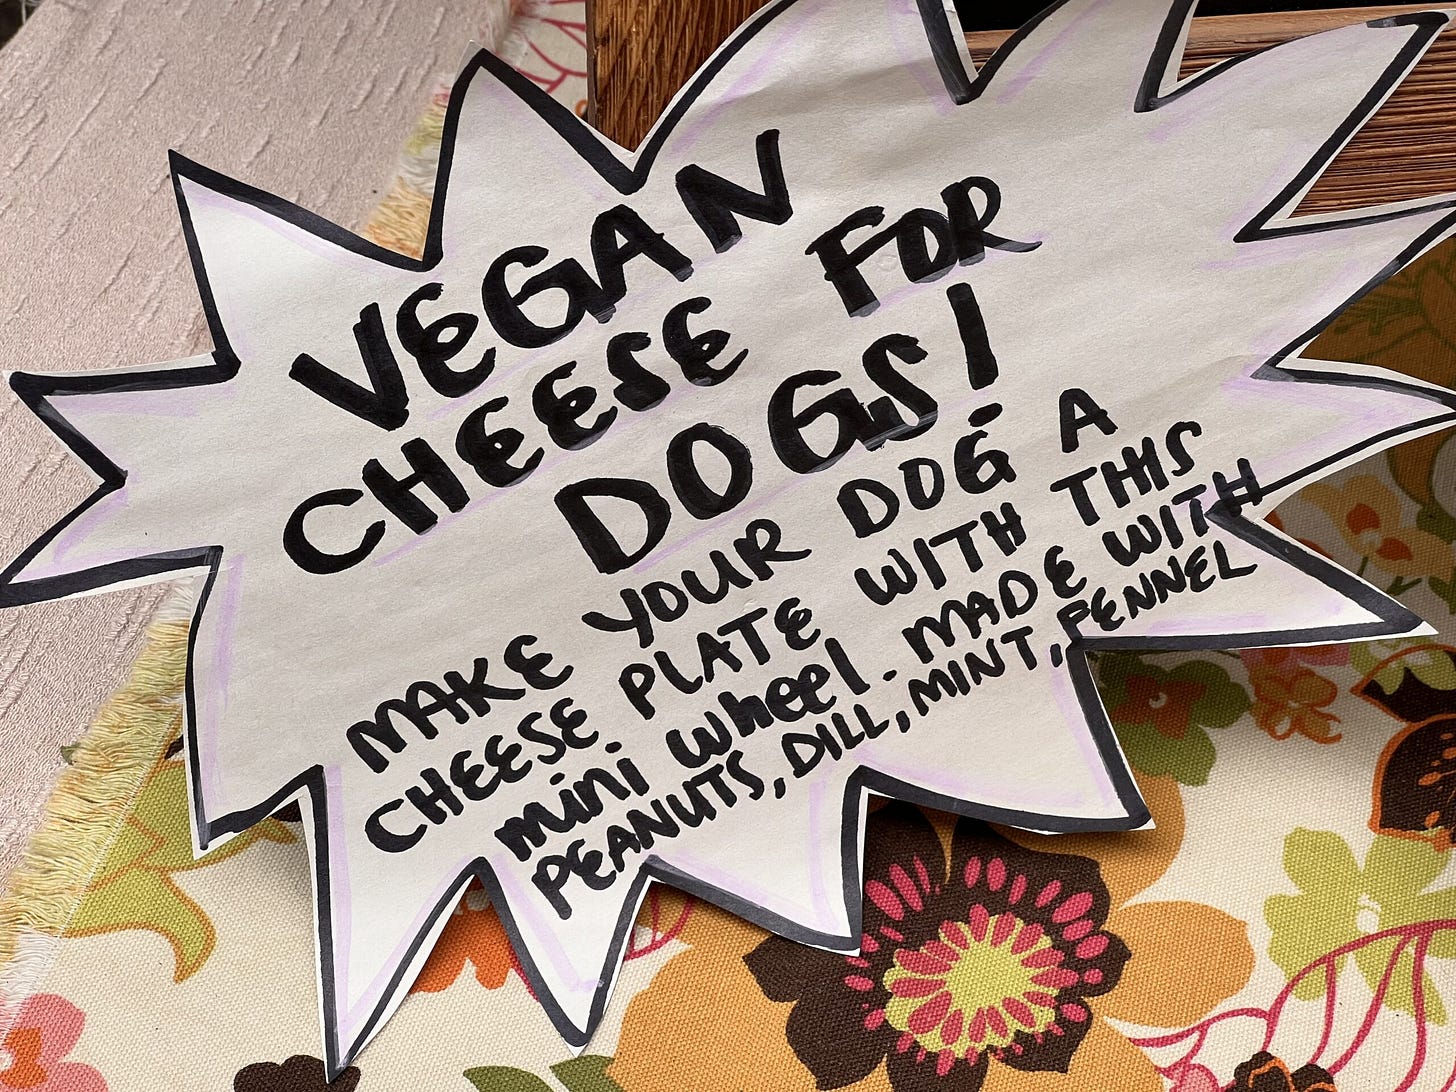 VEGAN
CHEESE FOR
DOGS!
MAKE YOUR DOG A
CHEESE PLATE WITH THIS
mini wheel. MADE WITH
PEANUTS, DILL, MINT, FENNEL